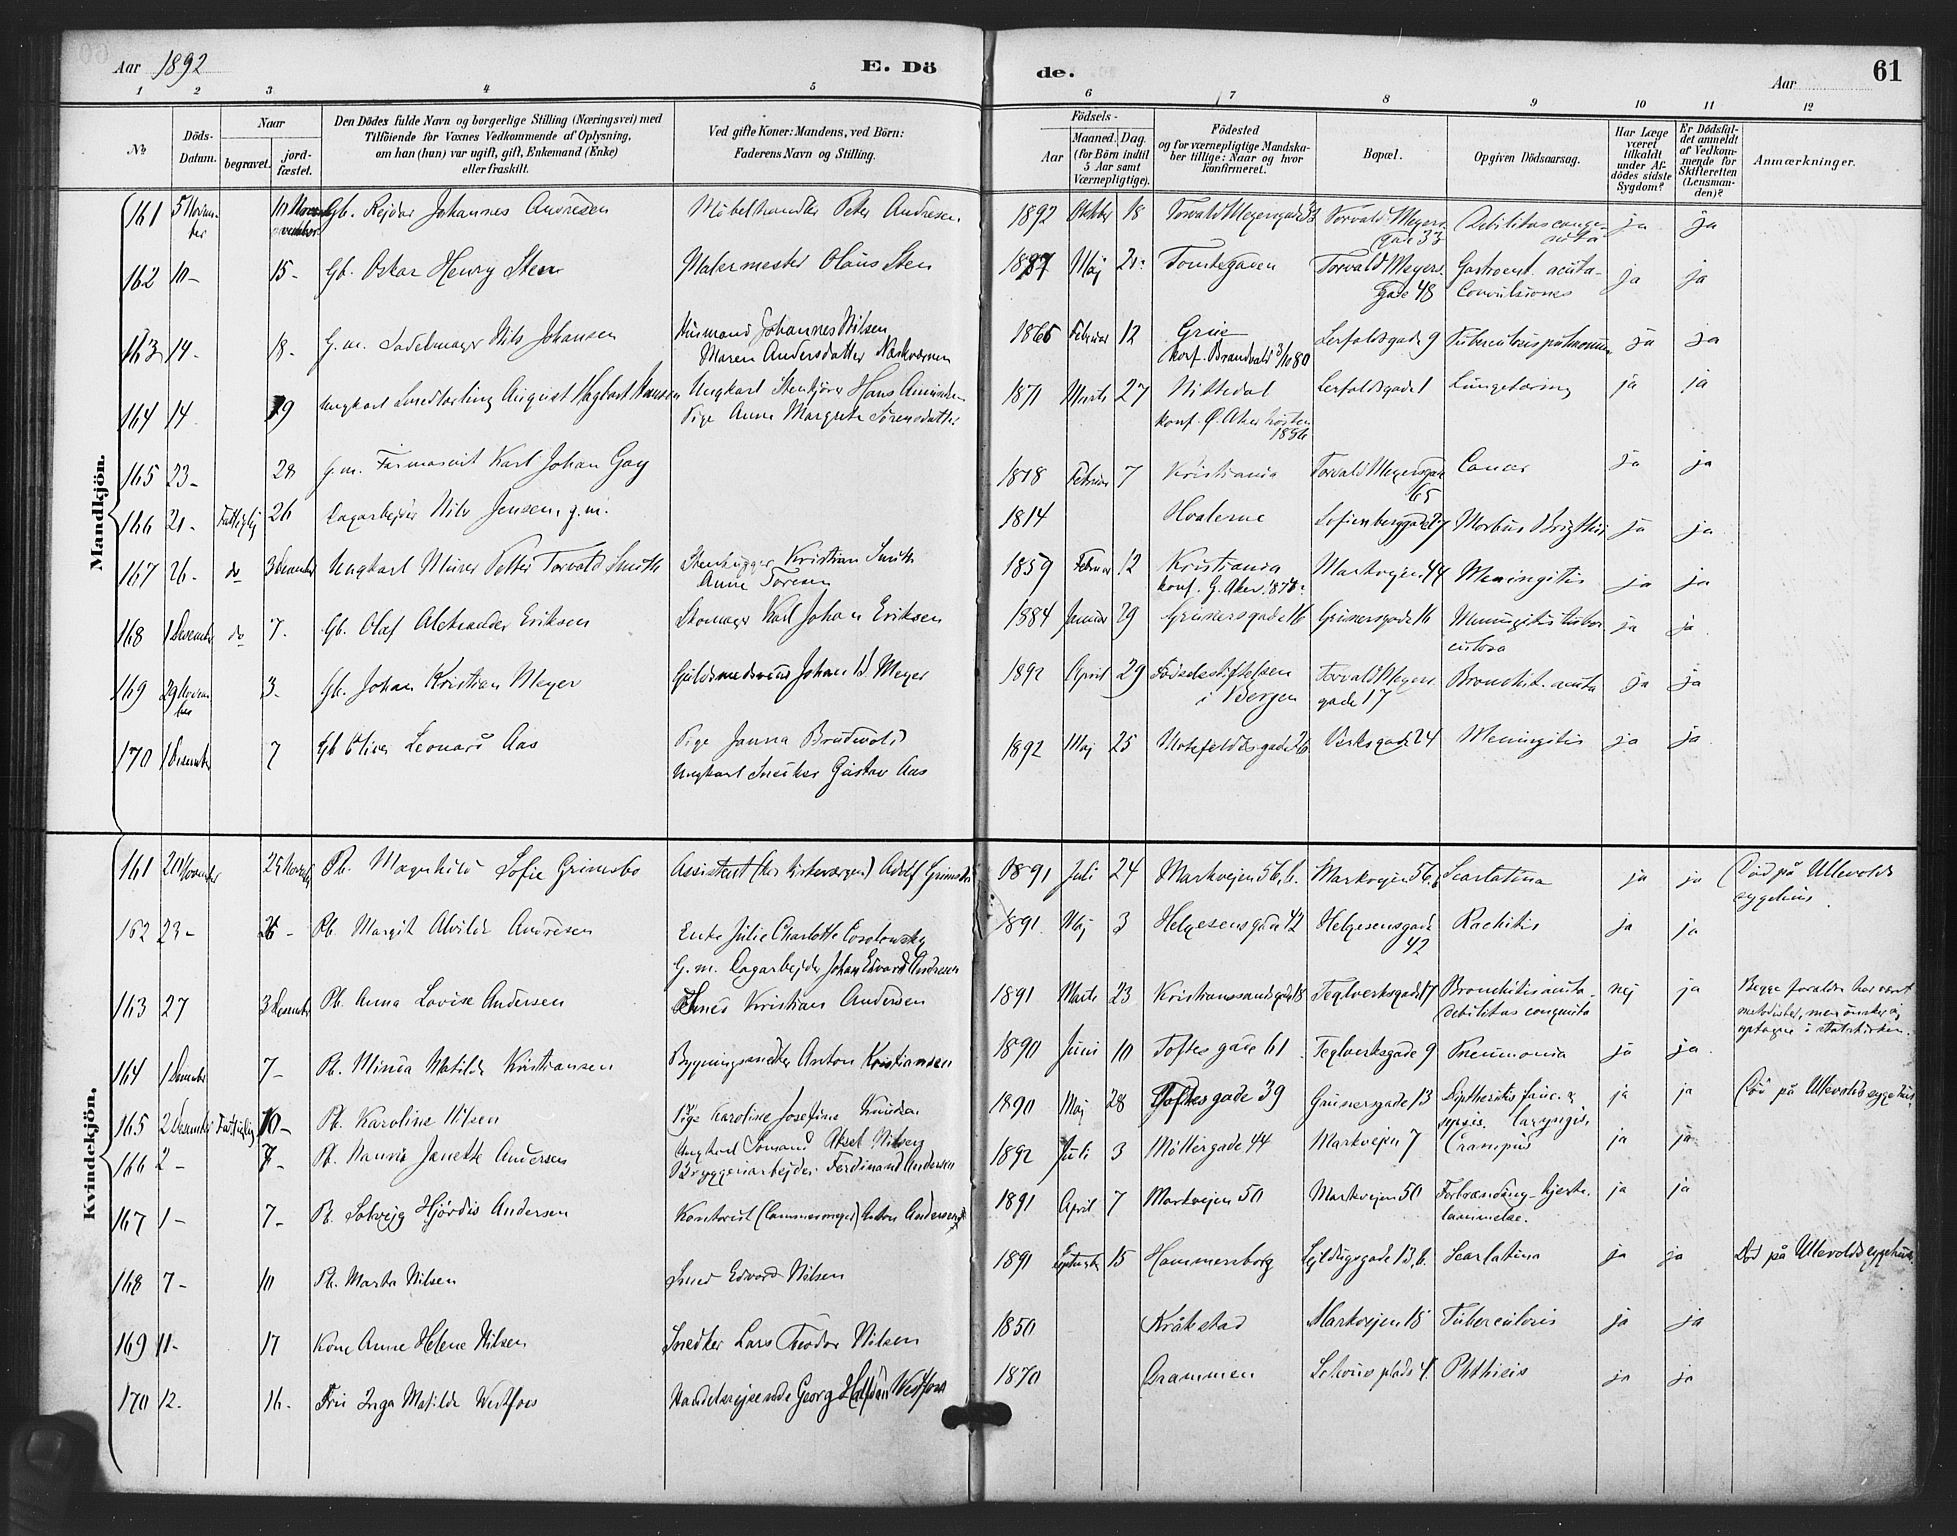 Aar 1892
E. Dö
de.
Aar
61
1 2 3 4 5 6 7 8 9 10 11 12
No
Döds-Datum.
Naar
begravet.
jord-fæstet.
Den Dödes fulde Navn og borgerlige Stilling (Næringsvei) med
Tilföiende for Voxnes Vedkommende af Oplysning,
om han (hun) var ugift, gift, Enkemand (Enke)
eller fraskilt.
Ved gifte Koner: Mandens, ved Börn:
Faderens Navn og Stilling.
Födsels-
Aar
Maaned. Dag.
(for Börn indtil
5 Aar samt
Værnepligtige).
Födested
og for værnepligtige Mandska-
ber tillige: Naar og hvor
konfirmeret.
Bopæl.
Opgiven Dödsaarsag.
Har Læge
været
tilkaldt
under Af-
dödes sidste
Sygdom?
Er Dödsfal-
det anmeldt
af Vedkom-
mende for
Skifteretten
(Lensman-
den)?
Anmærkninger.
Mandkjön.
161 5 November Gb. Rejdar Johannes Andresen Möbelhandler Peter Andresen 1892 Oktober 18 Torvald Meyersgade 33 Torvald Meyers gade 33 Debilitas congenita ja ja
162 10- 15- Gb. Oskar Henry Sten Malermester Olaus Sten 1887 Maj Tomtegaden Torvald Meyers gade 48 Gastroent. acuta- Convulsiones ja ja
163 14- 18- G.m. Sadelmager Nils Johansen Husmand Johannes Nilsen Maren Andersdatter 1865 Februar 12 Grue konf. Brandvold 3/10 80 Lerfoldsgade 9 Tuberculosis pulmonum ja ja
164 14 19 Ungkarl Snedkerling August Hagbart Hansen Ungkarl Stenkjörer Hans Amundsen Pige Anne Margrete Sörensdatter 1871 Marts 27 Nittedal konf. Ø. Aker hösten 1886 Lerfoldsgade 1 Lungetæring ja ja
165 23- 28 G.m. Farmaceut Karl Johan Gay 1818 Februar 7 Kristiania Torvald Meyersgade 65 Cancer ja ja
166 21- Fattiglig 26 Dagarbejder Nils Jensen, g.m. 1814 Hvalerne Sofienberggade 27 Morbus Brigthii ja ja
167 26- do 3 December Ungkarl Murer Petter Torvald Smith Stenhugger Kristian Smith Anne Toresen 1859 Februar 12 Kristiania konf. G. Aker Markvejen 44 Meningitis ja ja
168 1 December do 7- Gb. Olaf Aleksander Eriksen Skomager Karl Johan Eriksen 1884 Januar 29 Grünersgade 16 Grünersgade 16 Meningitis tuberculosa ja ja
169 29 November 3- Gb. Johan Kristian Meyer Guldsmedsvend Johan B Meyer 1892 April 29 Födselsstiftelsen i Bergen Torvald Meyers gade 17 Bronchit. acuta ja ja
170 1 December 7 Gb Oliver Leonard Aas Pige Janna Brudvold Ungkarl Snedker Gustav Aas 1892 Maj 25 Motzfeldtsgade 26 Verksgade 24 Meningitis ja ja
Kvindekjön.
161 20 November 25 November Pb. Magnhild Sofie Grimsbo Assistent (hos kirkeværgen) Adolf Grimsbo 1891 Juli 24 Markvejen 56.b. Markvejen 56.b Scarlatina ja ja Död på Ullevolds sygehus.
162 23- 26- Pb. Margit Alvilde Andresen Enke Julie Charlotte G.m. Dagarbejder Johan Edvard Andresen 1891. Maj 3 Helgesensgade 42 Helgesensgade 42 Rachitis ja ja
163 27 3 December Pb. Anna Lovise Andersen Smed Kristian Andersen 1891 Marts 23 Kristianssandsgade 18 Teglverksgade 17 Bronchitis acuta debilitas congenita nej ja Begge foreldre har vært metodister, men önsker sig optagne i statskirken.
164 1 December 7- Pb. Minda Matilde Kristiansen Bygningssnedker Anton Kristiansen 1890 Juni 10 Toftesgade 61 Teglverksgade 9 Pneumonia ja ja
165 2 December Fattiglig 10- Pb. Karoline Nilsen Pige Karoline Josefine Knudsen Ungkarl Sömand Aksel Nilsen 1890 Maj 28 Toftesgade 39 Grünersgade 13 Dyptheritis fauc. & laryngis, ja ja Död på Ullevolds sygehus.
166 2- 7- Pb. Nanna Janette Andersen Bryggeriarbejder Ferdinand Andersen 1892 Juli 3 Möllergade 44 Markvejen 7 Crampus ja ja
167 1- 7- Pb. Solvejg Hjördis Andersen Kontorist Anton Andersen 1891 April 7 Markvejen 50 Markvejen 50 Forbrænding- hjertelammelse. ja ja
168 7- 10 Pb. Marta Nilsen Smed Edvard Nilsen 1891 September 15 Hammersborg 13.b. Scarlatina ja ja Död på Ullevolds sygehus.
169 11- 17 Kone Anne Helene Nilsen Snedker Lars Teodor Nilsen 1850 Kråkstad Markvejen 18 Tuberculosis ja ja
170 12. 16. Fru Inga Matilde Westfoss Handelsrejsende Georg Halfdan Westfoss 1870 Drammen Schous plads 4. Phthisis ja ja